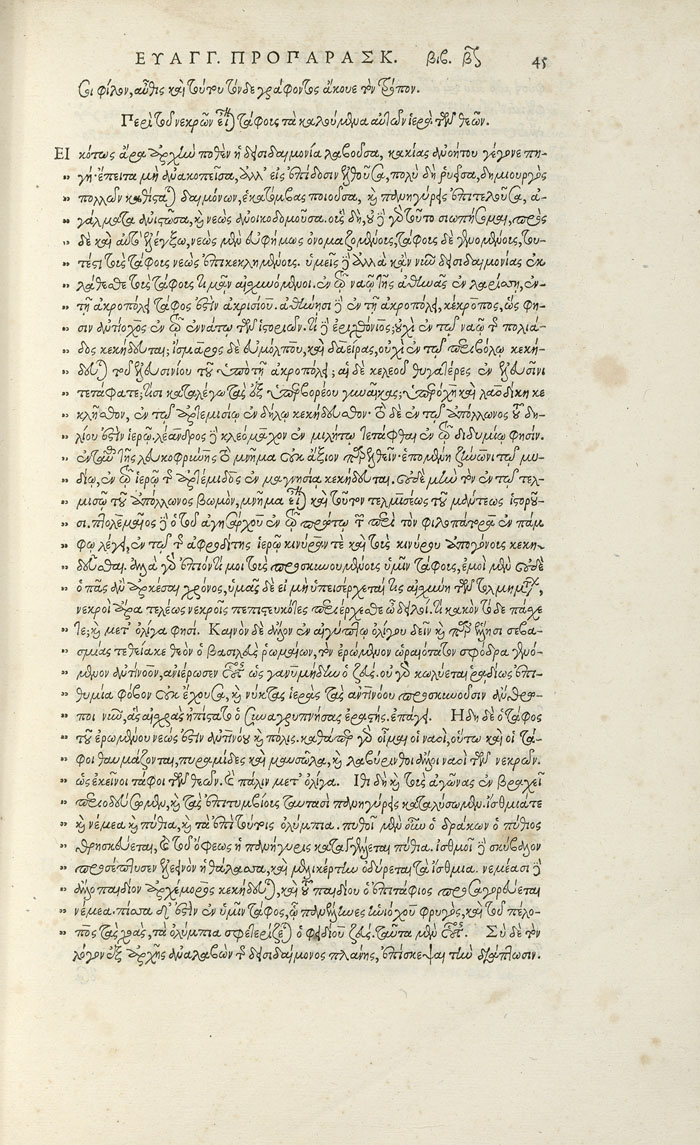 ΕΥΑΓΓ. ΠΡΟΠΑΡΑΣΚ. βιβ. β 45
σοι φίλον, αὖθις καὶ τούτου τόνδε γράφοντος ἄκουε τὸν τρόπον.
Περὶ τοῦ νεκρῶν εἶναι τάφοις τὰ καλούμενα αὐτῶν ἱερὰ τῶν θεῶν.
ΕΙκότως ἄρα ἀρχήν ποθεν ἡ δεισιδαιμονία λαβοῦσα, κακίας ἀνοήτου γέγονε πη-
γή· ἔπειτα μὴ ἀνακοπεῖσα, ἀλλ' εἰς ἐπίδοσιν ἐλθοῦσα, πολὺ δὴ ῥυεῖσα, δημιουργὸς
πολλῶν καθίσταται δαιμόνων, ἑκατόμβας ποιοῦσα, καὶ πανηγύρεις ἐπιτελοῦσα, ἀ-
γάλματα ἀνιστᾶσα, καὶ νεὼς ἀνοικοδομοῦσα. οὓς δὴ, οὐ γὰρ τοῦτο σιωπήσομαι, πρὸς
δὲ καὶ αὐτὸ ἐλέγξω, νεὼς μὲν εὐφήμως ὀνομαζομένους, τάφοις δὲ γενομένους, του-
τέστι τοὺς τάφους νεὼς ἐπικεκλημένους. ὑμεῖς δὲ ἀλλὰ κἂν νῦν δεισιδαιμονίας ἐκ-
λάθεσθε τοὺς τάφους τιμᾶν αἰσχυνόμενοι. ἐν τῷ ναῷ τῆς ἀθηνᾶς ἐν λαρίσσῃ, ἐν
τῇ ἀκροπόλει τάφος ἐστὶν ἀκρισίου. ἀθήνησι δὲ ἐν τῇ ἀκροπόλει, κέκροπος, ὥς φη-
σιν ἀντίοχος ἐν τῷ ἐννάτῳ τῶν ἱστοριῶν. τί δὲ ἐριχθόνιος; οὐχὶ ἐν τῷ ναῷ τῆς πολιά-
δος κεκήδευται; ἰσμάρος δὲ εὐμόλπου, καὶ δαείρας, οὐχὶ ἐν τῷ περιβόλῳ κεκή-
δευται τοῦ ἐλευσινίου τοῦ ὑπὸ τῇ ἀκροπόλει; αἱ δὲ κελεοῦ θυγατέρες ἐν ἐλευσῖνι
τετάφαται; τί σοι καταλέγω τὰς ἐξ ὑπερβορέου γυναῖκας; ὑπερόχη καὶ λαοδίκη κέ
κλησθον, ἐν τῷ ἀρτεμισίῳ ἐν δήλῳ κεκήδευσθον· τὸ δὲ ἐν τῷ ἀπόλλωνος τοῦ δη-
λίου ἐστὶν ἱερῷ. λέανδρος δὲ κλεόμαχον ἐν μιλήτῳ τετάφθαι ἐν τῷ διδυμίῳ φησίν.
ἐνταῦθα τῆς λευκοφρύνης τὸ μνῆμα οὐκ ἄξιον παρελθεῖν· ἑπομένη ζήνωνι τῷ μυ-
δίῳ, ἐν τῷ ἱερῷ τῆς ἀρτέμιδος ἐν μαγνησίᾳ κεκήδευται. οὐδὲ μὴν τὸν ἐν τῷ τελ-
μισῷ τοῦ ἀπόλλωνος βωμὸν, μνῆμα εἶναι καὶ τοῦτον τελμισέως τοῦ μάντεως ἱστοροῦ-
σι. πτολεμαῖος δὲ ὁ τοῦ ἀγησάρχου ἐν τῷ πρώτῳ τῶν περὶ τὸν φιλοπάτορα ἐν πάμ
φῳ λέγει, ἐν τῷ τῆς ἀφροδίτης ἱερῷ κινύραν τε καὶ τοὺς κινύρου ἀπογόνους κεκη-
δεῦσθαι. ἀλλὰ γὰρ ἐπιόντι μοι τοὺς προσκυνουμένους ὑμῖν τάφους, ἐμοὶ μὲν οὐδὲ
ὁ πᾶς ἂν ἀρκέσαι χρόνος, ὑμᾶς δὲ εἰ μὴ ὑπεισέρχεται τὶς αἰσχύνη τῶν τολμημάτων,
νεκροὶ ἄρα τελέως νεκροῖς πεπιστευκότες περιέρχεσθε ὦ δειλοὶ. τί κακὸν τόδε πάσχε
τε; καὶ μετ' ὀλίγα φησί. Καινὸν δὲ ἄλλον ἐν αἰγύπτῳ ὀλίγου δεῖν καὶ παρ' ἕλλησι σεβα-
σμίως τεθείακε θεὸν ὁ βασιλεὺς ῥωμαίων, τὸν ἐρώμενον ὡραιότατον σφόδρα γενό-
μενον ἀντίνοον, ἀνιέρωσεν οὕτως ὡς γανυμήδην ὁ ζεύς. οὐ γὰρ κωλύεται ῥᾳδίως ἐπι-
θυμία φόβον οὐκ ἔχουσα, καὶ νύκτας ἱερὰς τὰς ἀντινόου προσκυνοῦσιν ἄνθρω-
ποι νῦν, ἃς αἰσχρὰς ἠπίστατο ὁ συναγρυπνήσας ἐραστής. ἐπάγει. Ἤδη δὲ ὁ τάφος
τοῦ ἐρωμένου νεὼς ἐστὶν ἀντινόου καὶ πόλις. καθάπερ γὰρ οἶμαι οἱ ναοὶ, οὕτω καὶ οἱ τά-
φοι θαυμάζονται, πυραμίδες καὶ μαυσωλᾶ, καὶ λαβύρινθοι ἄλλοι ναοὶ τῶν νεκρῶν.
ὡς ἐκεῖνοι τάφοι τῶν θεῶν. καὶ πάλιν μετ' ὀλίγα. Ἴθι δὴ καὶ τοὺς ἀγῶνας ἐν βραχεῖ
περιοδεύσωμεν, καὶ τὰς ἐπιτυμβίους ταυτασὶ πανηγύρεις καταλύσωμεν. ἴσθμιά τε
καὶ νέμεα καὶ πύθια, καὶ τὰ ἐπὶ τούτοις ὀλύμπια. πυθοῖ μὲν οὖν ὁ δράκων ὁ πύθιος
θρησκεύεται, καὶ τοῦ ὄφεως ἡ πανήγυρις καταγγέλλεται πύθια. ἰσθμοῖ δὲ σκύβαλον
προσέπτυσεν ἐλεεινὸν ἡ θάλασσα, καὶ μελικέρτην ὀδύρεται τὰ ἴσθμια. νεμέασι δὲ
ἄλλο παιδίον ἀρχέμορος κεκήδευται, καὶ τοῦ παιδίου ὁ ἐπιτάφιος προσαγορεύεται
νέμεα. πίσσα δ' ἐστὶν ἐν ὑμῖν τάφος, ὦ πανέλληνες ἡνιόχου φρυγὸς, καὶ τοῦ πέλο-
πος τὰς χοὰς, τὰ ὀλύμπια σφετερίζεται ὁ φειδίου ζεύς. ταῦτα μὲν οὕτως. Σὺ δὲ τὸν
λόγον ἐξ ἀρχῆς ἀναλαβὼν τῆς δεισιδαίμονος πλάνης, ἐπίσκεψαι τὴν διάπλωσιν.